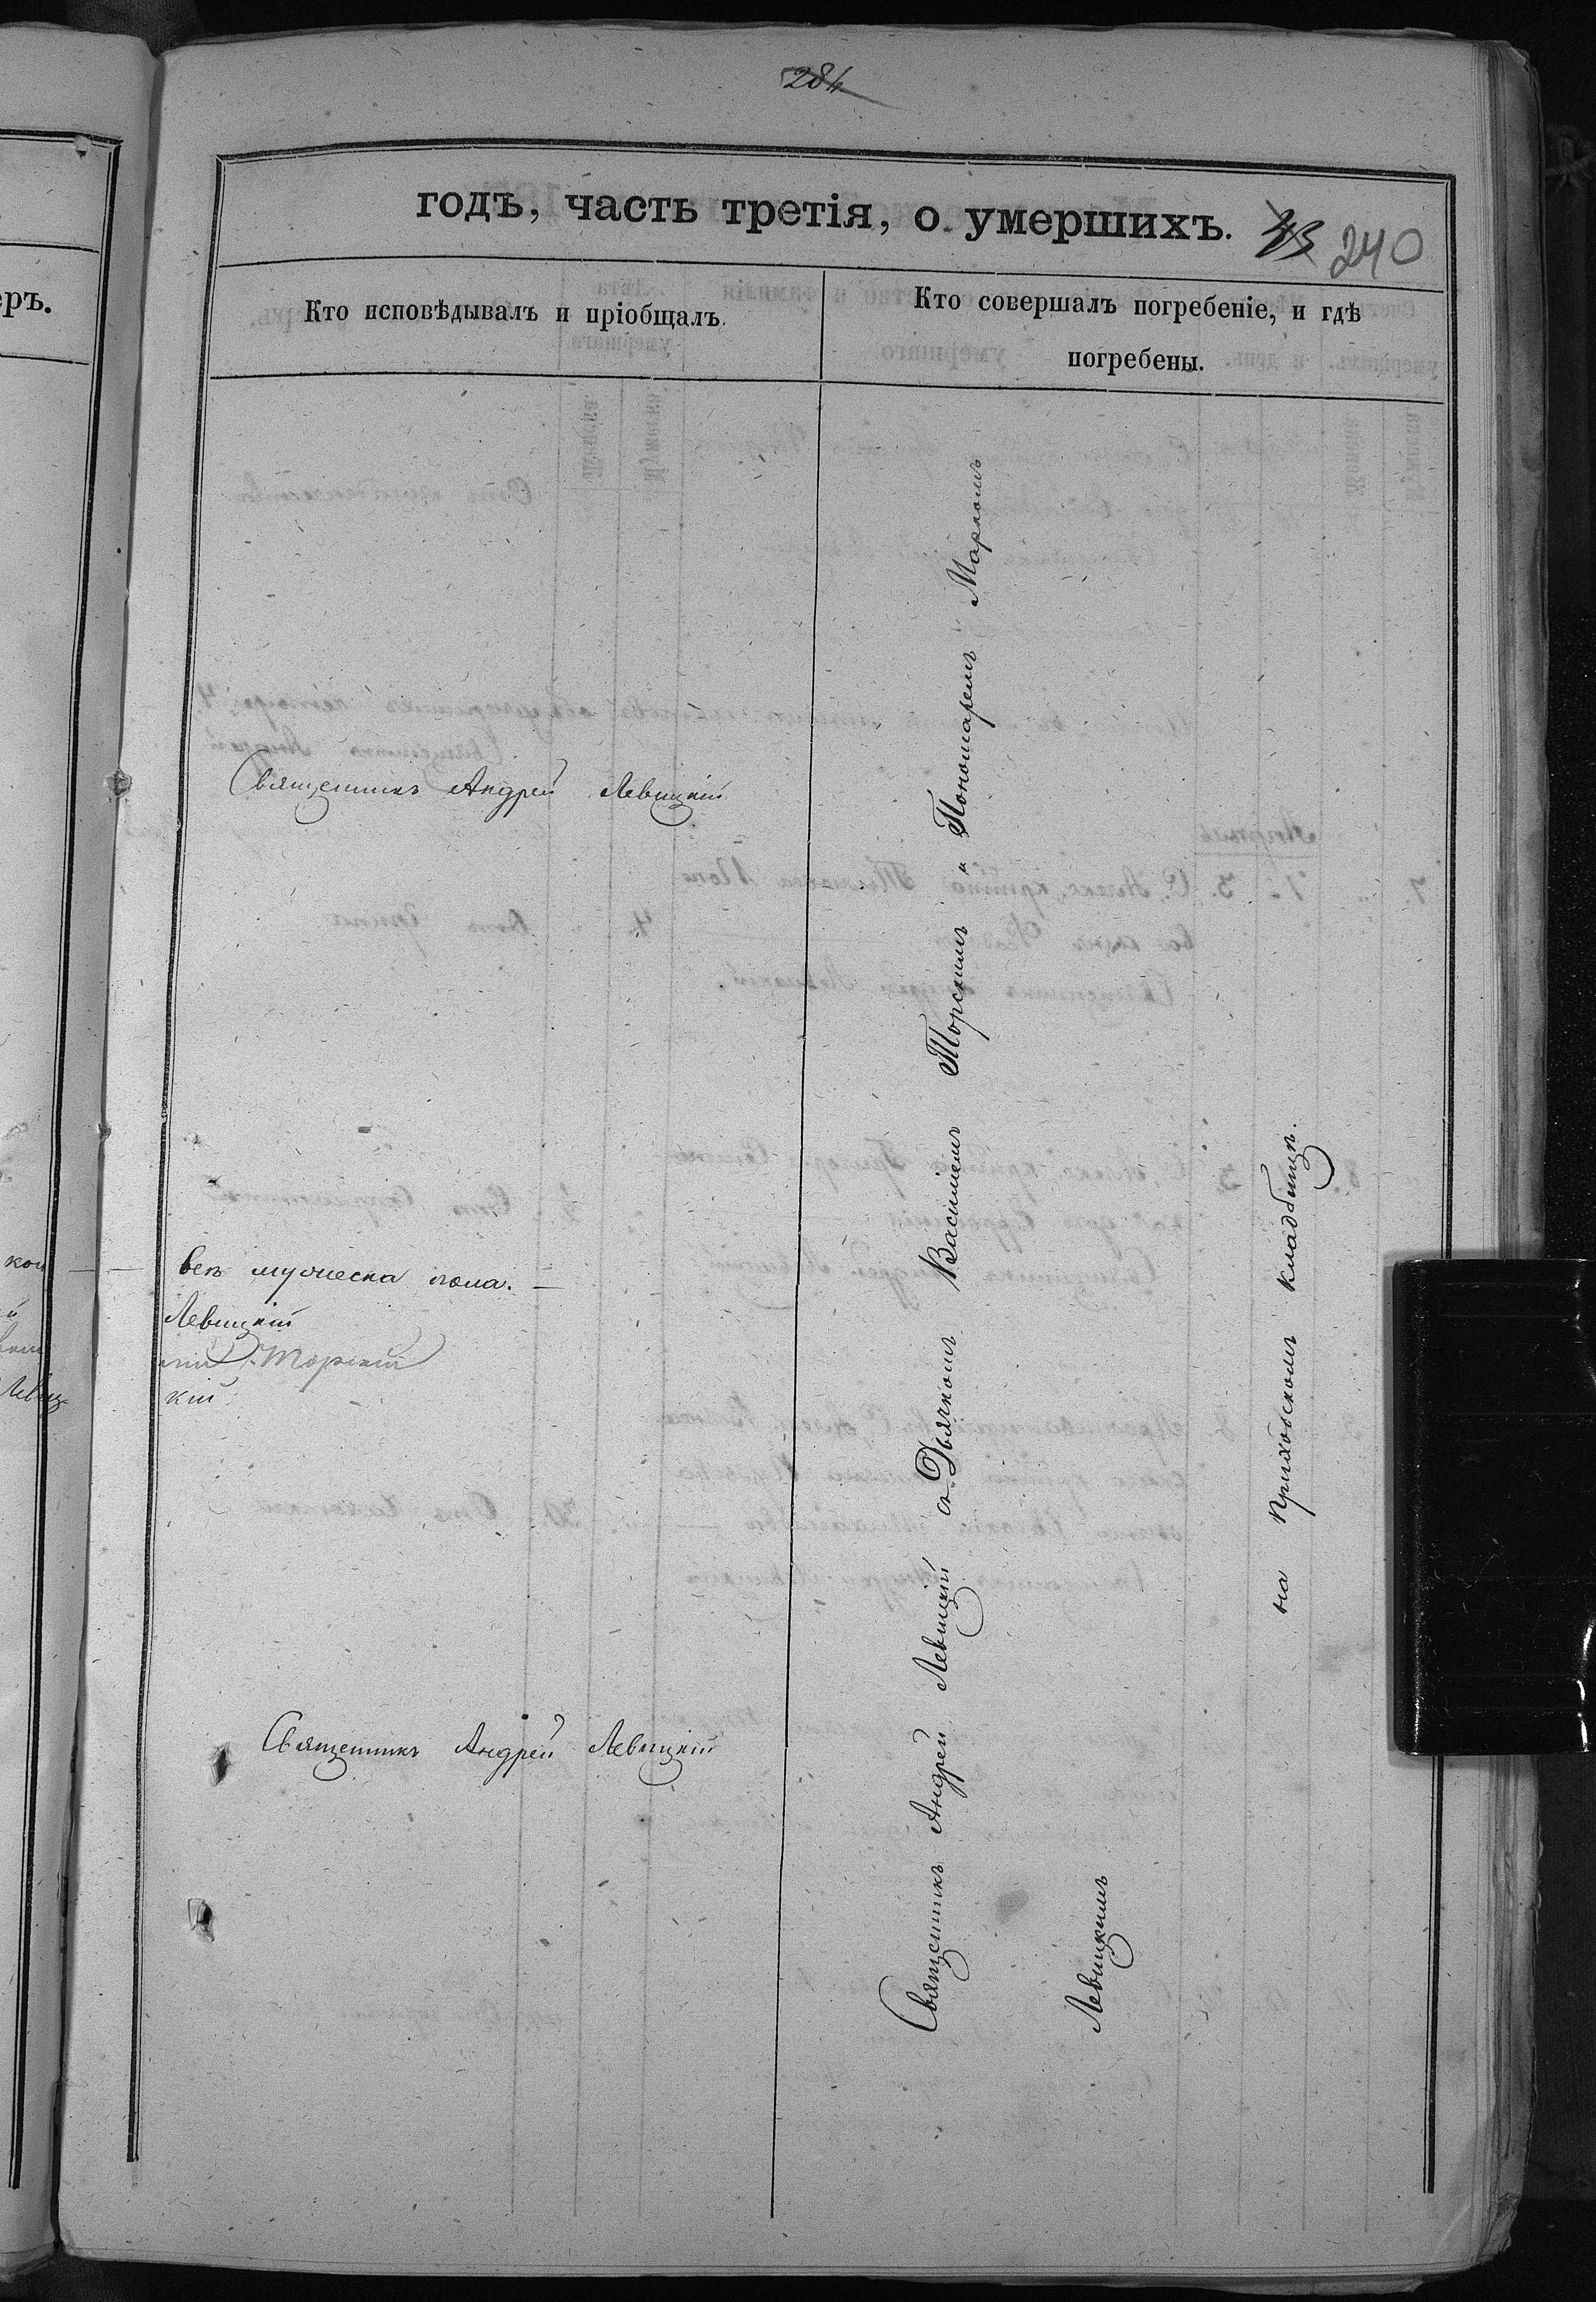 284
годъ, часть третія, о умершихъ.
240
еръ.
Кто исповѣдывалъ и пріобщалъ.
Кто совершалъ погребеніе, и гдѣ
погребены.
Священникъ Андрей Левицкій
векъ мужеска пола. —
Левицкій
Торскій
кій
Священникъ Андрей Левицкій
Священникъ Андрей Левицкій съ Дьячкомъ Василіемъ Торскимъ и Пономаремъ Маркомъ
Левицкимъ
на приходскомъ кладбищѣ.